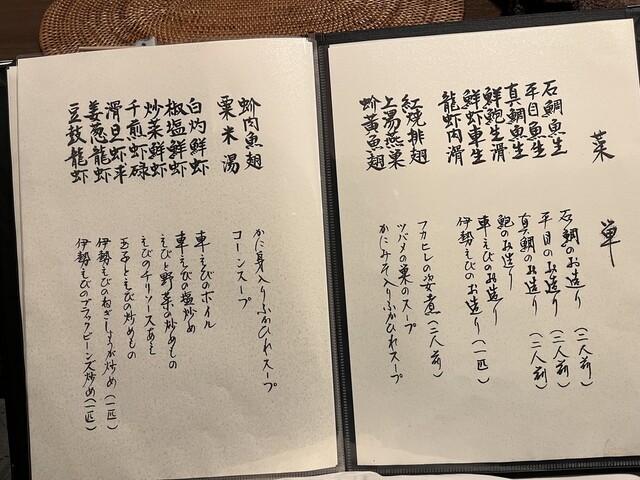 菜単
石鯛魚生 石鯛のお造り(二人前)
平目魚生 平目のお造り(二人前)
真鯛魚生 真鯛のお造り(二人前)
鮮鮑生滑 鮑のお造り
鮮虾車生 車えびのお造り
龍虾肉滑 伊勢えびのお造り(一匹)
紅焼排翅 フカヒレの姿煮(二人前)
上湯燕巣 ツバメの巣のスープ
蚧黄魚翅 かにみそ入りふかひれスープ
蚧肉魚翅 かに身入りふかひれスープ
粟米湯 コーンスープ
白灼鮮虾 車えびのボイル
椒塩鮮虾 車えびの塩炒め
炒菜鮮虾 えびと野菜の炒めもの
干煎虾碌 えびのチリソースあえ
滑旦虾平 玉子とえびの炒めもの
姜葱龍虾 伊勢えびのねぎしょうが炒め(一匹)
豆豉龍虾 伊勢えびのブラックビーンズ炒め(一匹)